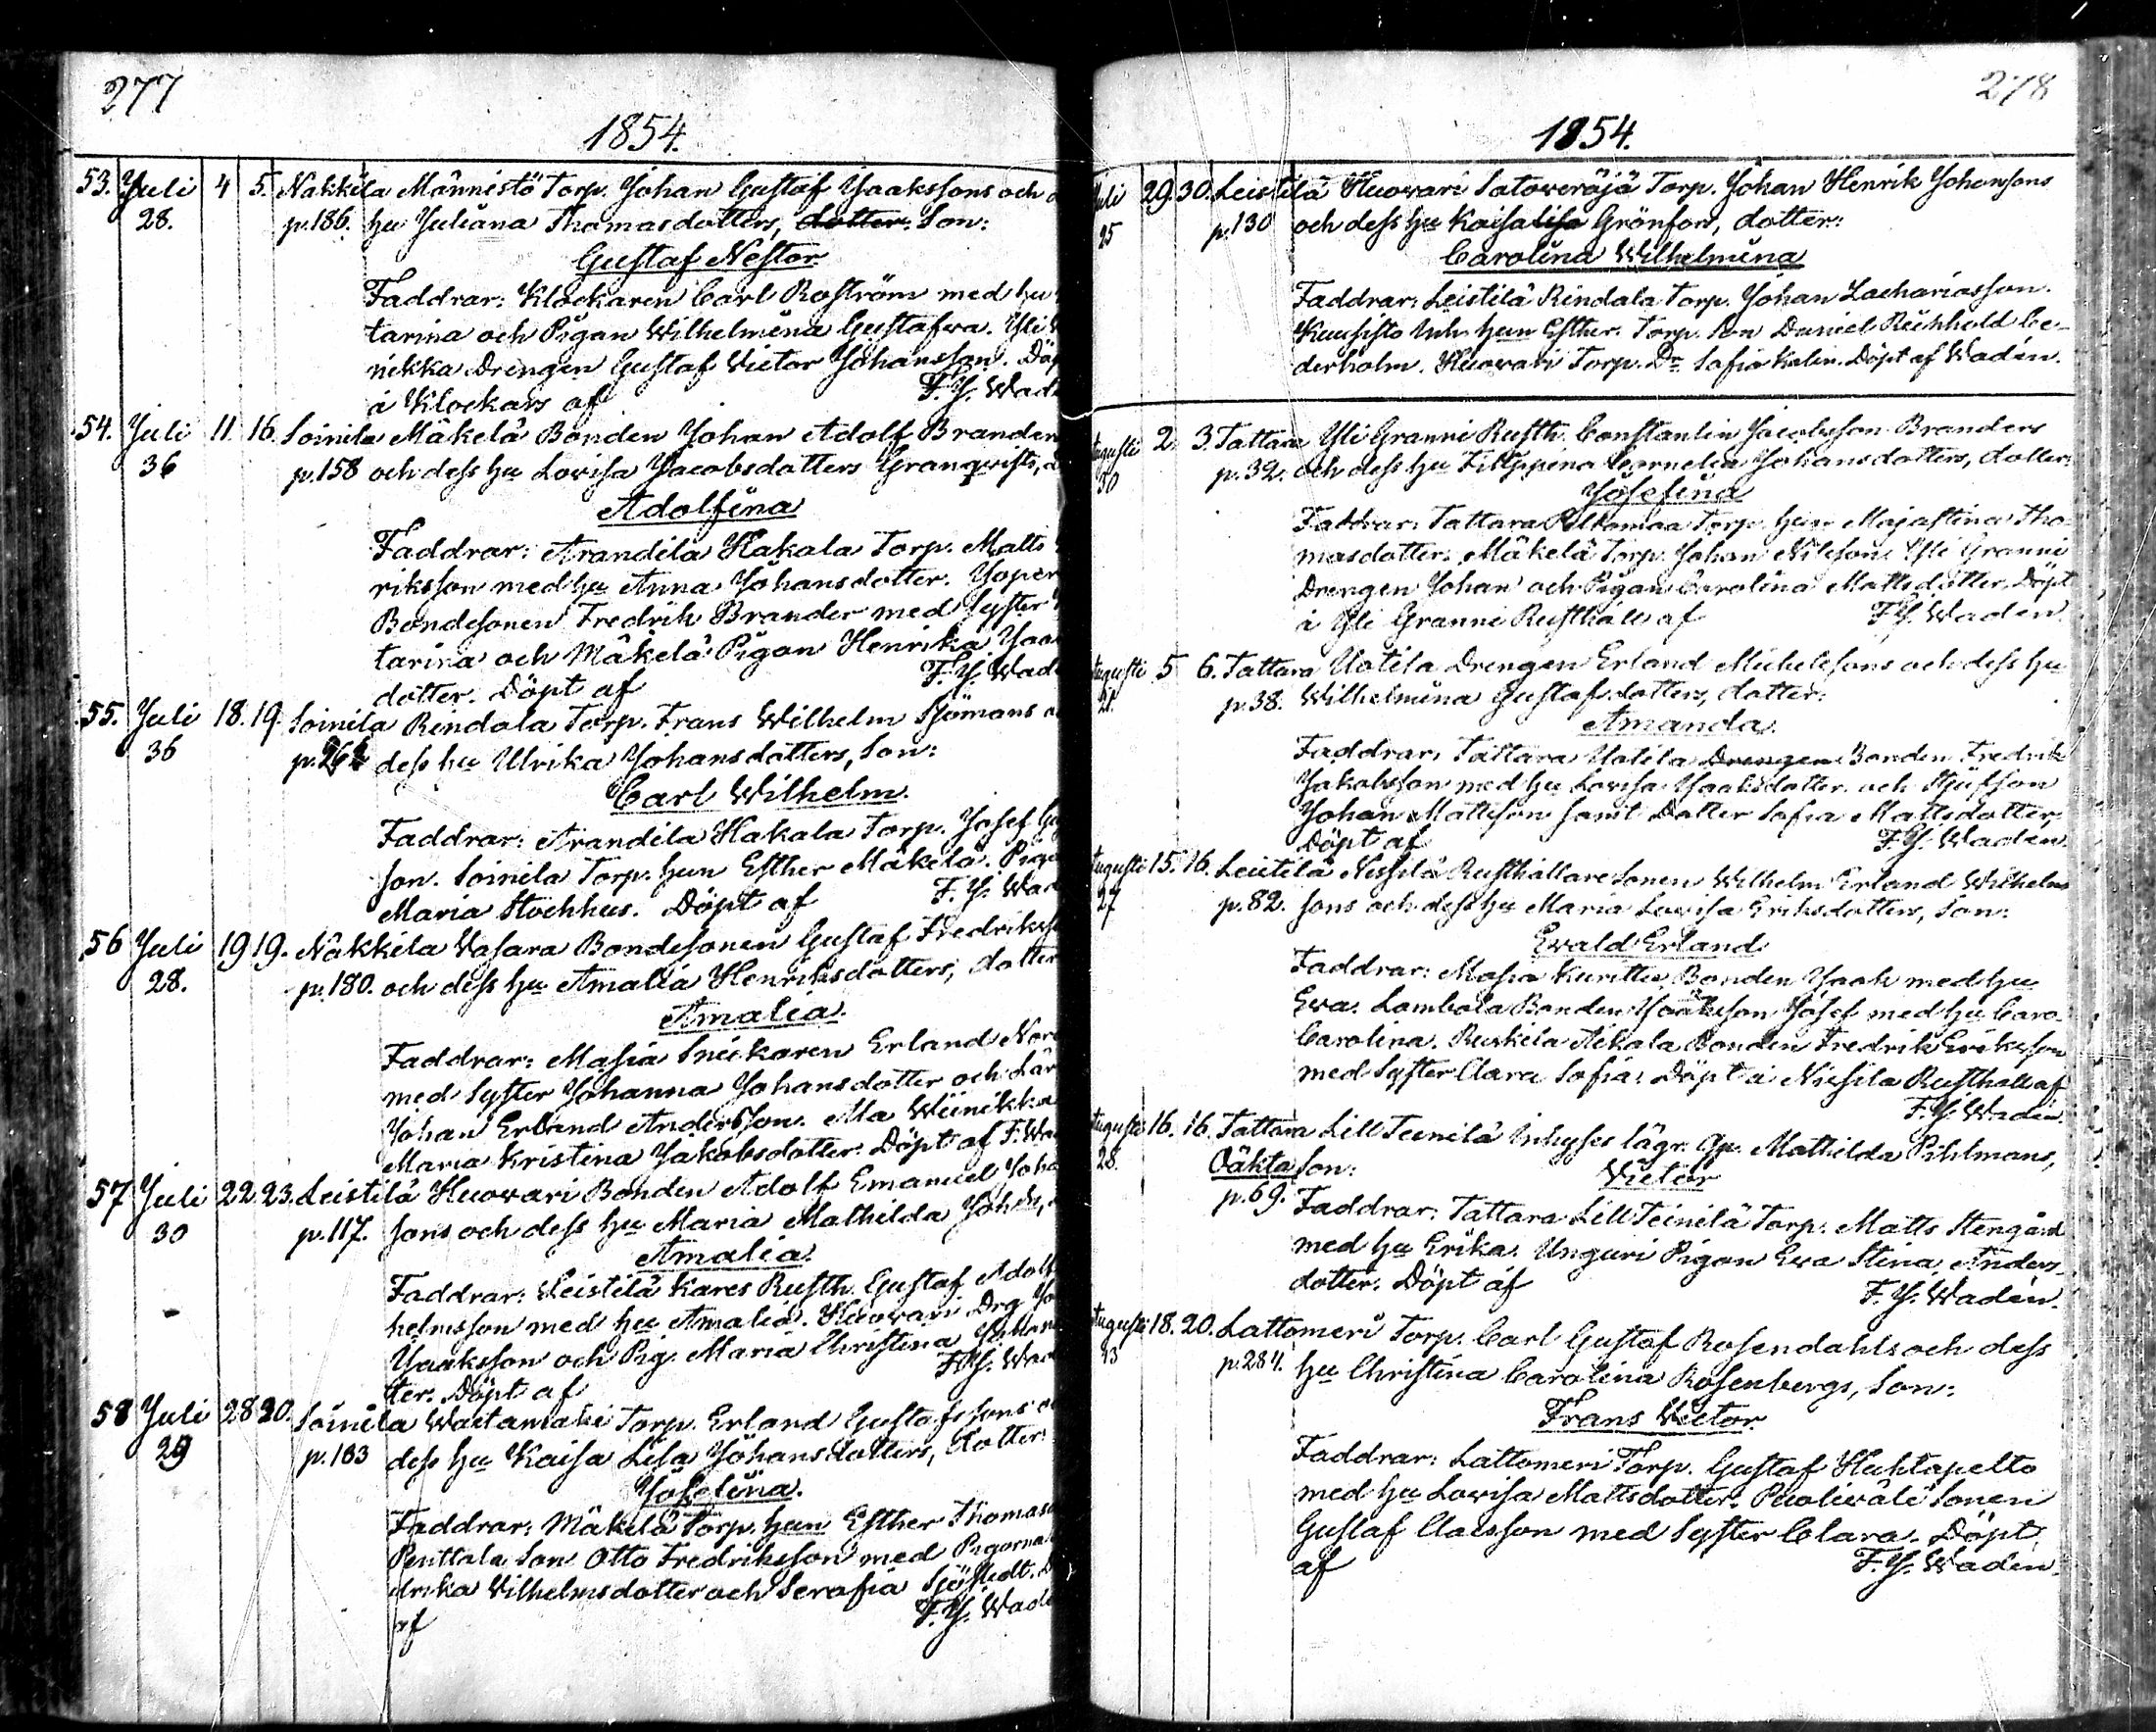 277
1854.
53. Juli 4 5. Nakkila Männistö Torp. Johan Gustaf Jaakssons och
28. p. 186. hu Juliana Thomasdotters, dotter. Son:
Gustaf Nestor
Faddrar: Klockaren Carl Roström med hu
tarina och Pigan Wilhelmina Gustafwa. Yli
nikka Drengen Gustaf Victor Johansson. Döp
å Klockars af F. J. Wad
54. Juli 11. 16. Soinila Mäkelä Bonden Johan Adolf Brander
36 p. 158 och dess hu Lovisa Jacobsdotters Granqvists,
Adolfina
Faddrar: Arandila Hakala Torp. Matts
riksson med hu Anna Johansdotter. Joper
Bondesonen Fredrik Brander med Syster
tarina och Mäkelä Pigan Henrika Jaa
dotter. Döpt af F. J. Wad
55. Juli 18. 19. Soinila Rindala Torp. Frans Wilhelm Sjömans
36 dess hu Ulrika Johansdotters, Son:
Carl Wilhelm.
Faddrar: Arandila Hakala Torp. Josef
son. Soinila Torp. hun Esther Mäkelä. Piga
Maria Stockhus. Döpt af F. J. Wad
56 Juli 19 19. Nakkila Wasara Bondesonen Gustaf Fredrikss
28. p. 180. och dess hu Amalia Henriksdotters, dotter
Amalia.
Faddrar: Masia Snickaren Erland Nor
med Syster Johanna Johansdotter och Lär
Johan Erland Andersson. Ala Wiinikka
Maria Kristina Jakobsdotter. Döpt af F. Wa
57 Juli 22. 23. Leistilä Huovari Bonden Adolf Emanuel Joha
30 p. 117. sons och dess hu Maria Mathilda Joh dr,
Amalia.
Faddrar: Leistilä Kares Rusth. Gustaf Adolf
helmsson med hu Amalia. Huovari Drg Jo
Jaaksson och Pig. Maria Christina Johan
ter. Döpt af F. J. Wad
58 Juli 28 30. Soinila Waitamäki Torp. Erland Gustafssons
29 p. 163 dess hu Kaisa Lisa Johansdotters, dotter:
Josefina.
Faddrar: Mäkelä Torp. hun Esther Thomas
Penttala Son Otto Fredriksson med Pigorna
drika Wilhelmsdotter och Serafia Sjöstedt.
af F. J. Wad
278
1854.
Juli 29. 30. Leistilä Huovari Satoveräjä Torp. Johan Henrik Johanssons
25 p. 130 och dess hu Kaisa Lisa Grönfors, dotter:
Carolina Wilhelmina
Faddrar: Leistilä Rindala Torp. Johan Zachariasson.
Kuusisto Inh. hun Esther. Torp. Son Daniel Reinhold Ce-
derholm. Huovari Torp. Dr Sofia Kalin. Döpt af Wadén.
Augusti 2. 3. Tattara Yli Granni Rusth. Constantin Jacobsson Branders
30 p. 32. och dess hu Filippina Cornelia Johansdotters, dotter:
Josefina
Faddrar: Tattara Torp. hun Majastina Tho-
masdotter. Mäkelä Torp. Johan Nilsson. Yli Granni
Drengen Johan och Pigan Carolina Mattsdotter. Döpt
å Yli Granni Rusthåll af F. J. Wadén.
Augusti 5 6. Tattara Uotila Drengen Erland Michelssons och dess hu
28. p. 38. Wilhelmina Gustafsdotters, dotter:
Amanda.
Faddrar: Tattara Uotila Drengen Bonden Fredrik
Jakobsson med hu Lovisa Jaaksdotter och Stjufson
Johan Mattsson samt Dotter Sofia Mattsdotter.
Döpt af F. J. Wadén.
Augusti 15. 16. Leistilä Nissilä Rusthållaresonen Wilhelm Erland Wilhelms
27 p. 82. sons och dess hu Maria Lovisa Eriksdotters, Son:
Evald Erland
Faddrar: Masia Kuritta Bonden Jaak med hu
Eva. Lambola Bonden Jaaksson Josef med hu Caro-
Carolina. Ruskila Äikälä Bonden Fredrik Eriksson
med Syster Clara Sofia. Döpt å Nissilä Rusthåll af
F. J. Wadén.
Augusti 16. 16. Tattara Lill Teinilä Inhyses lägr. Qp. Mathilda Pihlmans,
28. Oäkta Son:
Victor
p. 69. Faddrar: Tattara Lill Teinilä Torp. Matts Stengård
med hu Erika. Unguri Pigan Eva Stina Anders-
dotter. Döpt af F. J. Wadén.
Augusti 18. 20. Lattomeri Torp. Carl Gustaf Rosendahls och dess
p. 284. hu Christina Carolina Rosenbergs, Son:
Frans Victor
Faddrar: Lattomeri Torp. Gustaf Huhtapelto
med hu Lovisa Mattsdotter. Puolivali Sonen
Gustaf Claesson med Syster Clara. Döpt
af F. J. Wadén.